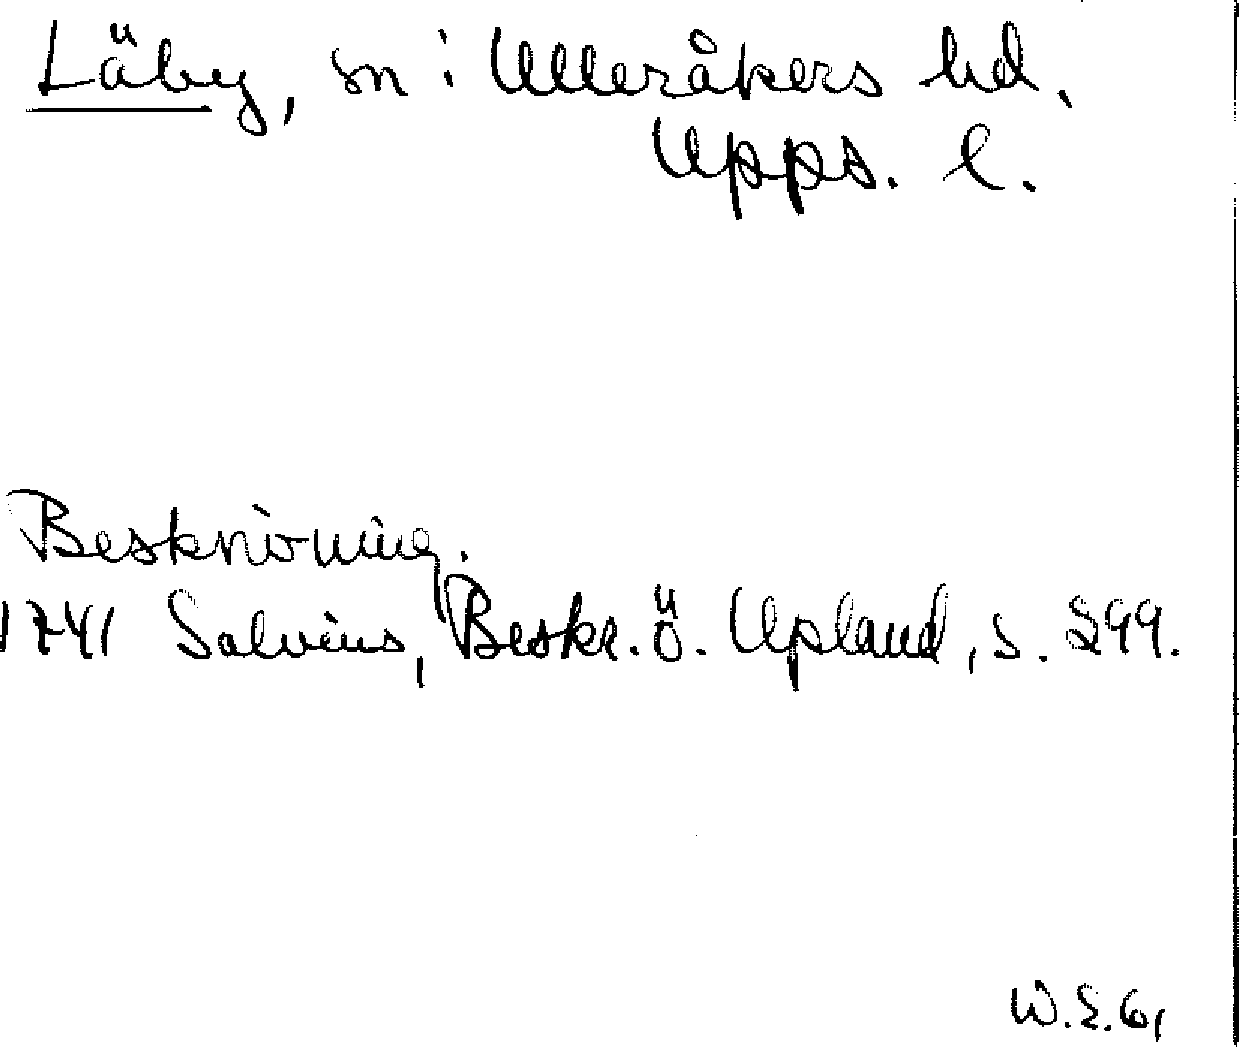 Läby, sn i Ulleråkers hd.
Upps. l.
Beskrivning.
1741 Salvius, Beskr. ö. Upland, s. 299.
W.E.6,